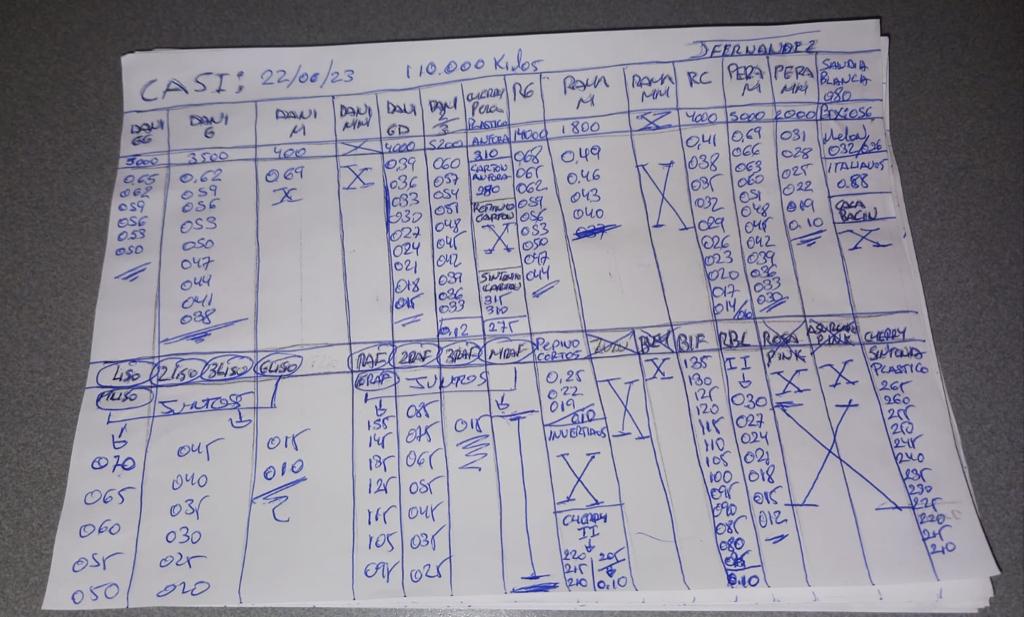 CASI: 22/06/23 110.000 Kilos JFERNANDEZ
DANI GG DANI G DANI M DANI MM DANI GD DANI CHERRY PERA PLASTICO RG RAMA M RAMA MM RC PERA M PERA MM SANDIA BLANCA 080
5000 3500 400 X 4000 5200 ANFORA 14000 1800 X 4000 5000 2000
0,65 0,62 069 X 0,39 060 310 068 0,49 X 0,41 0,69 031 Melon/ 032/036
062 059 X 036 057 CARTON ANFORA 065 0,46 038 066 028 ITALIANOS
059 056 033 054 280 062 043 035 063 025 0.88
056 053 030 051 CARTON 059 040 032 060 022
053 050 027 048 X 056 029 051 019 X
050 047 024 045 053 026 048 0.10
044 021 042 SINTONIA CARTON 050 023 045
041 018 039 315 047 020 042
038 015 036 310 044 017 039
033 014/ 036
0,12 275 033
030
4LISO 2LISO 3LISO 6LISO RAF 2RAF 3RAF MRAF PEPINO CORTOS BLF RBL ROSA PINK ASURCADO PINK CHERRY
1LISO JUNTOS GRAF JUNTOS 0,25 X X 135 II X X SINTONIA PLASTICO
070 045 015 155 085 015 0,22 130 030 265
065 040 010 145 075 019 125 027 260
060 035 135 065 010 120 024 255
055 030 125 055 INVERTIDOS 115 021 250
050 025 115 045 X 110 018 245
020 105 035 105 015 240
095 025 CHERRY II 100 012 235
220 205 095 230
215 090 225
210 0,10 085 220
080 215
0.10 210